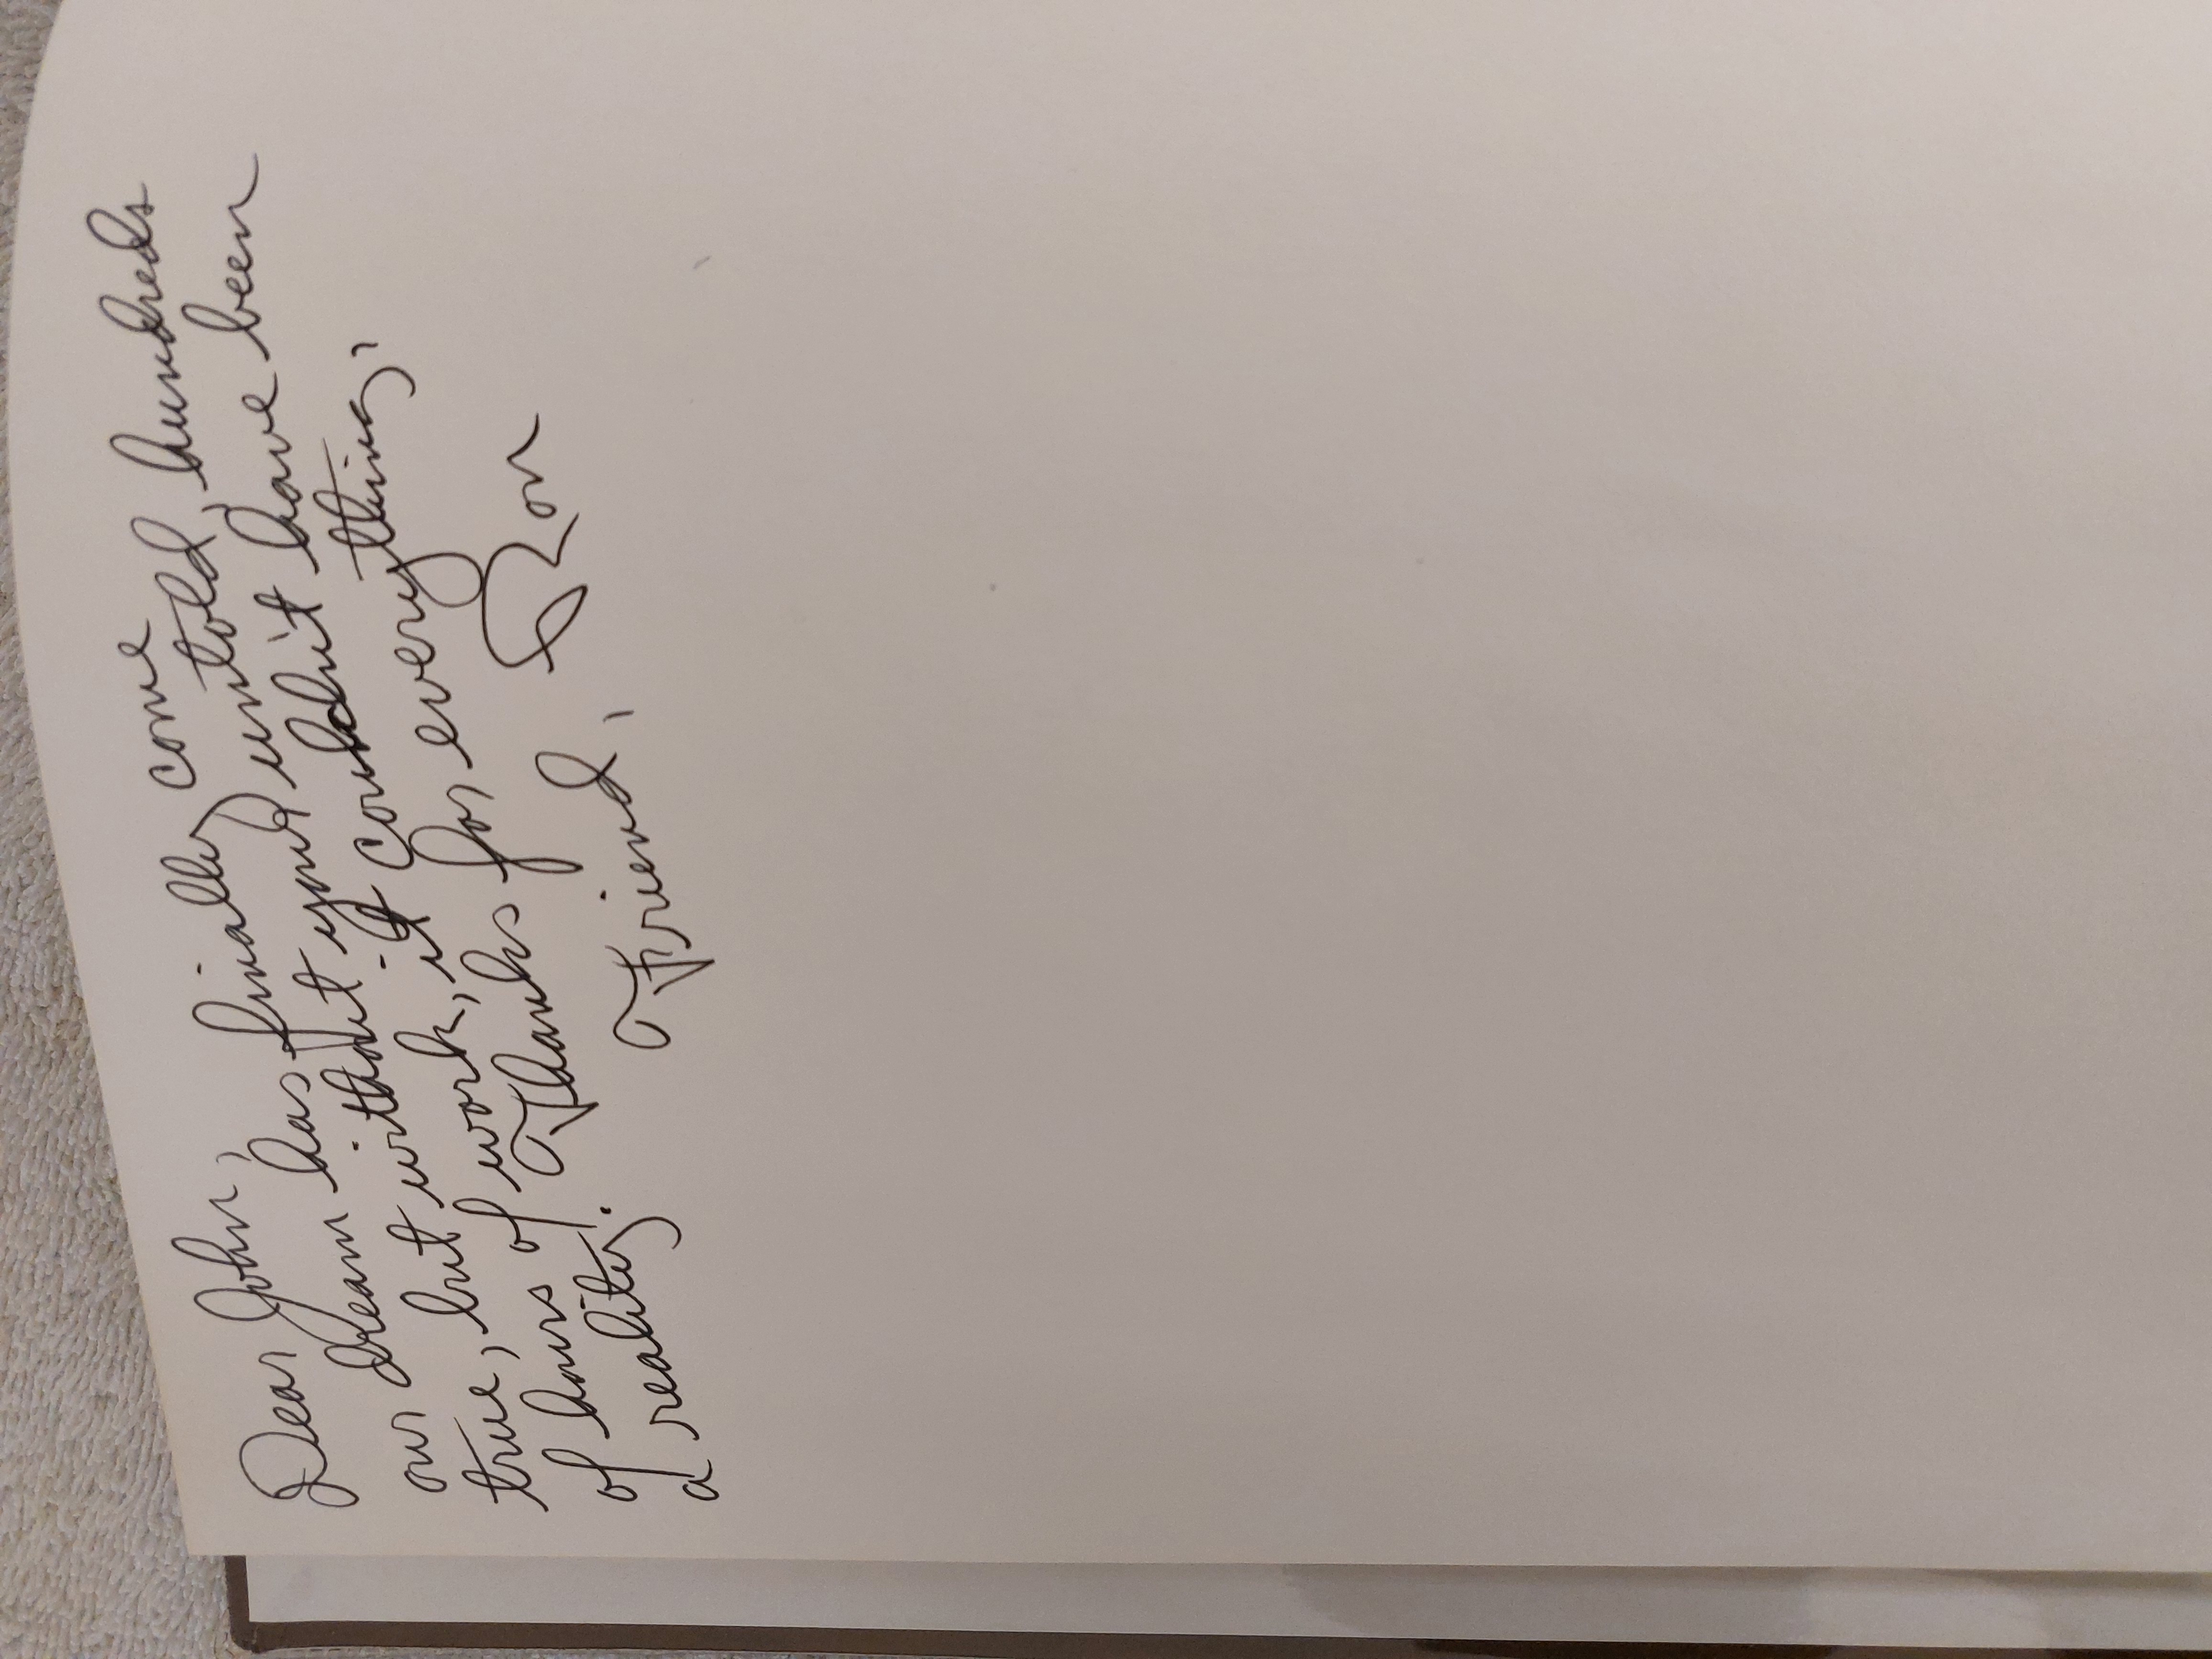 Dear John,
our dream has finally come
true, but without your untold, hundreds
of hours of work, it couldn't have been
a reality. Thanks for everything,
Friend,
Ron